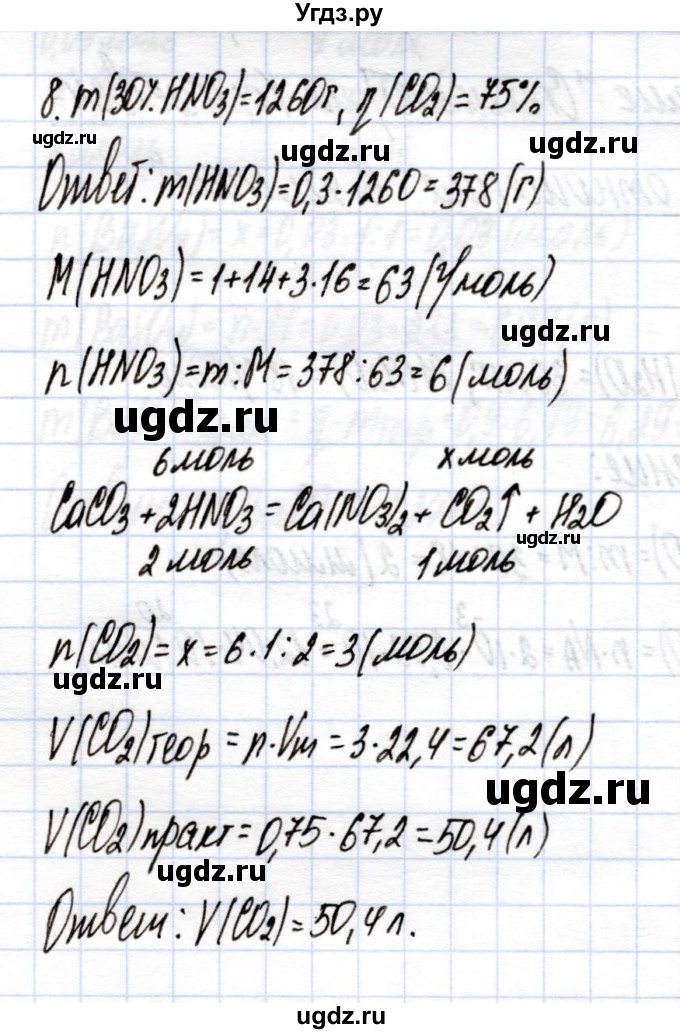 Угдз.ру
8. m(30% HNO₃)=1260г, η(CO₂)=75%
ugdz.ru ugdz.ru
Ответ: m(HNO₃)=0,3·1260=378(г)
M(HNO₃)=1+14+3·16=63(г/моль)
n(HNO₃)=m:M=378:63=6(моль)
ugdz.ru ugdz.ru
6 моль x моль
CaCO₃+2HNO₃=Ca(NO₃)₂+CO₂↑+H₂O
ugdz.ru
2 моль 1 моль
n(CO₂)=x=6·1:2=3(моль)
ugdz.ru ugdz.ru
V(CO₂)теор=n·Vm=3·22,4=67,2(л)
ugdz.ru
V(CO₂)практ=0,75·67,2=50,4(л)
ugdz.ru
Ответ: V(CO₂)=50,4л.
ugdz.ru ugdz.ru